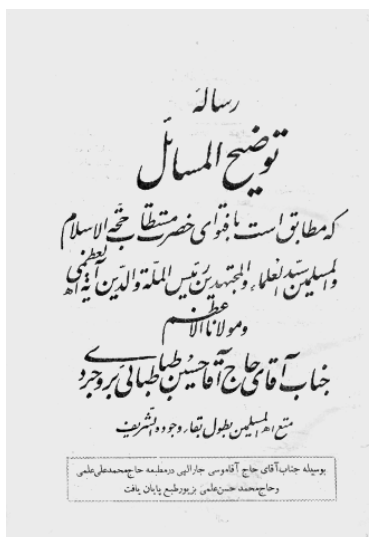 رسالهٔ
توضیح المسائل
که مطابق است با فتوای حضرت مستطاب حجة الاسلام
والمسلمین سید العلماء والمجتهدین رئیس الملة والدین آیة الله العظمی
ومولانا الاعظم
جناب آقای حاج آقا حسین طباطبائی بروجردی
متع الله المسلمین بطول بقاء وجوده الشریف
بوسیله جناب آقای حاج آقا موسی جارالهی درمطبعه حاج محمد علی علمی
وحاج محمد حسن علمی بزیور طبع پایان یافت